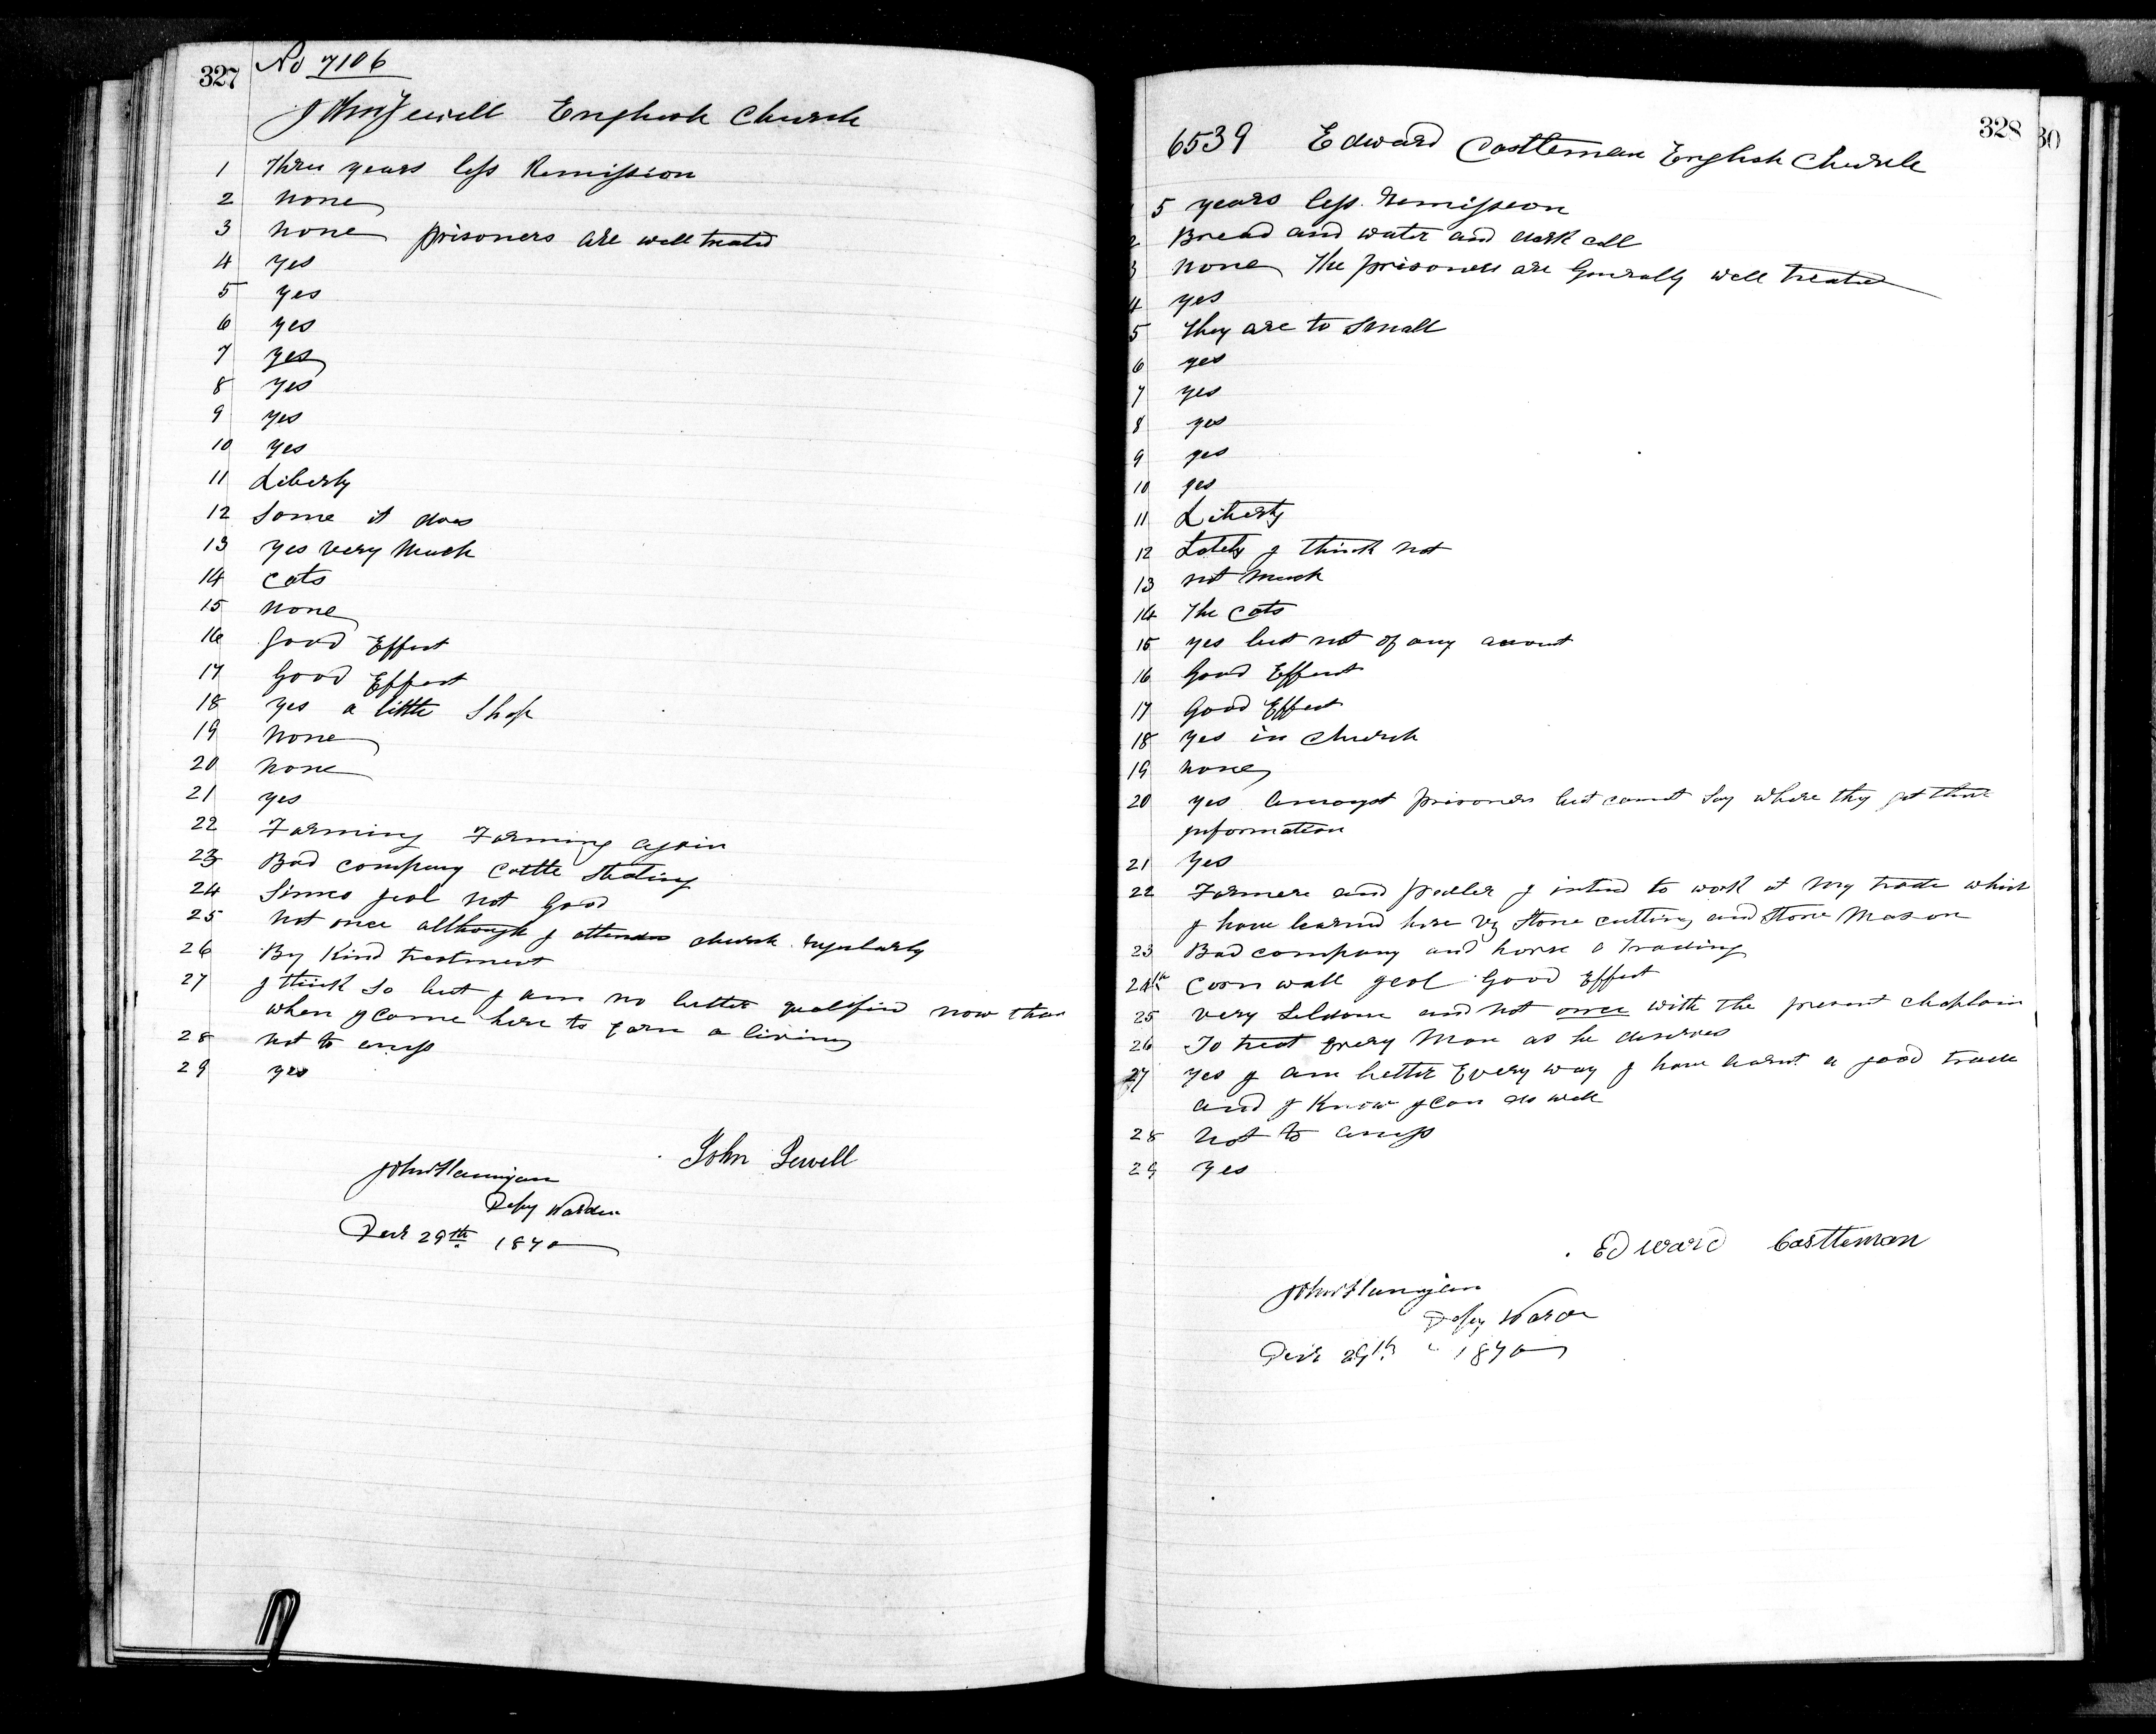 327 No 7106
John Jewell English Church
1 Three years less Remission
2 none
3 none prisoners are well treated
4 yes
5 yes
6 yes
7 yes
8 yes
9 yes
10 yes
11 Liberty
12 Some it does
13 yes very much
14 Cats
15 none
16 good Effect
17 Good Effect
18 yes a little Shop
19 none
20 none
21 yes
22 Farming Farming again
23 Bad company Cattle Stealing
24 Simco geol not Good
25 Not once although I attended church regularly
26 By Kind treatment
27 I think so but I am no better qualified now than
when I came here to earn a living
28 not to emys
29 yes
John Jewell
John Flannigan
Depy Warden
Decr 29th 1870
328
30
6539 Edward Castleman English Church
1 5 years less remission
2 Bread and water and dark cell
3 none The prisoners are Generally well treated
4 yes
5 They are to small
6 yes
7 yes
8 yes
9 yes
10 yes
11 Liberty
12 Lately I think not
13 not much
14 The Cats
15 yes but not of any acount
16 Good Effect
17 Good Effect
18 yes in church
19 none
20 yes amongst prisoners but cannot say where they get there
information
21 Yes
22 Farmer and pedler I intend to work at my trade which
I have learned here vz Stone cutting and Stone Mason
23 Bad company and horse a Trading
24th Cornwall geol Good Effect
25 very Seldome and not once with the present chaplain
26 To treat Every Man as he deserves
27 yes I am better Every way I have learnt a good trade
and I Know I can do well
28 Not to
29 Yes
Edward Castleman
John Flannigan
Depy Warden
Decr 29th " 1870